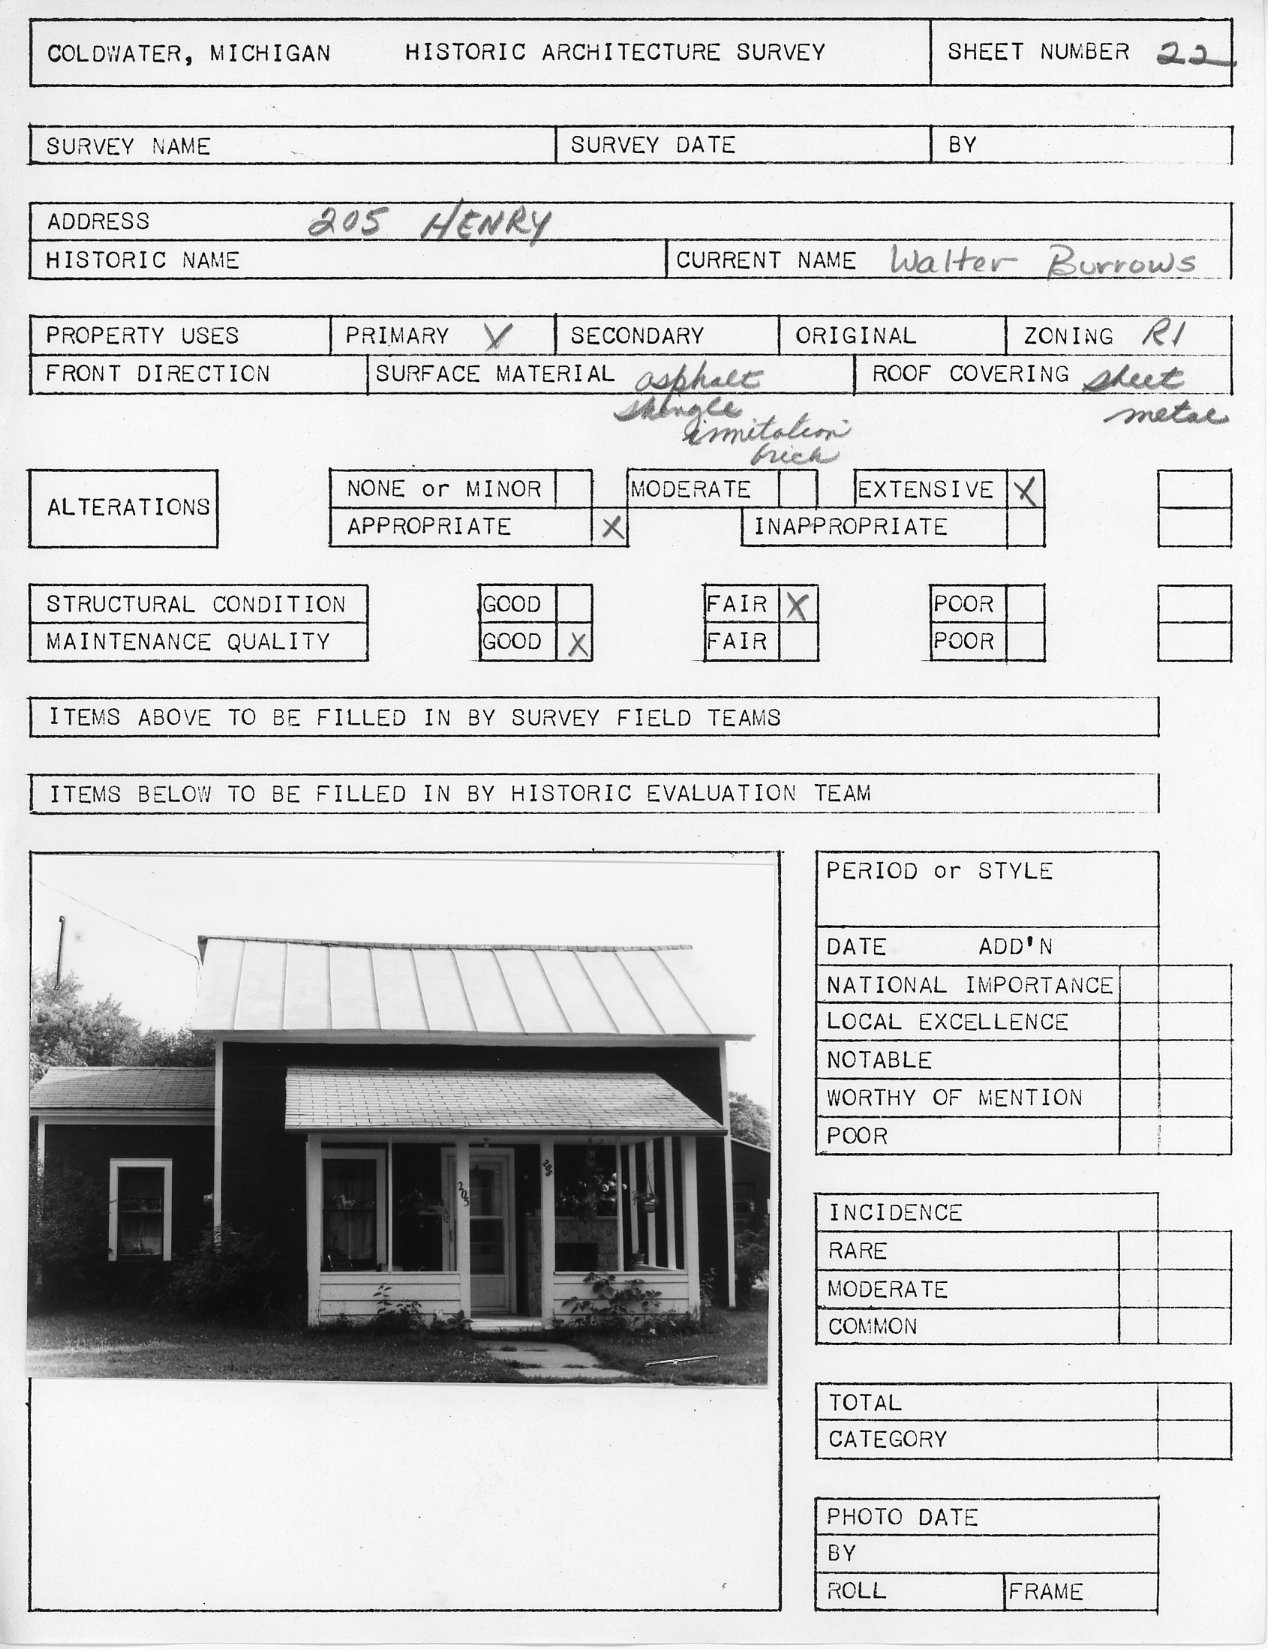 COLDWATER, MICHIGAN HISTORIC ARCHITECTURE SURVEY SHEET NUMBER 22
SURVEY NAME SURVEY DATE BY
ADDRESS 205 HENRY
HISTORIC NAME CURRENT NAME Walter Burrows
PROPERTY USES PRIMARY X SECONDARY ORIGINAL ZONING R1
FRONT DIRECTION SURFACE MATERIAL asphalt ROOF COVERING sheet
shingle metal
immitation
brick
ALTERATIONS
NONE or MINOR MODERATE EXTENSIVE X
APPROPRIATE X INAPPROPRIATE
STRUCTURAL CONDITION GOOD FAIR X POOR
MAINTENANCE QUALITY GOOD X FAIR POOR
ITEMS ABOVE TO BE FILLED IN BY SURVEY FIELD TEAMS
ITEMS BELOW TO BE FILLED IN BY HISTORIC EVALUATION TEAM
205
205
PERIOD or STYLE
DATE ADD'N
NATIONAL IMPORTANCE
LOCAL EXCELLENCE
NOTABLE
WORTHY OF MENTION
POOR
INCIDENCE
RARE
MODERATE
COMMON
TOTAL
CATEGORY
PHOTO DATE
BY
ROLL FRAME